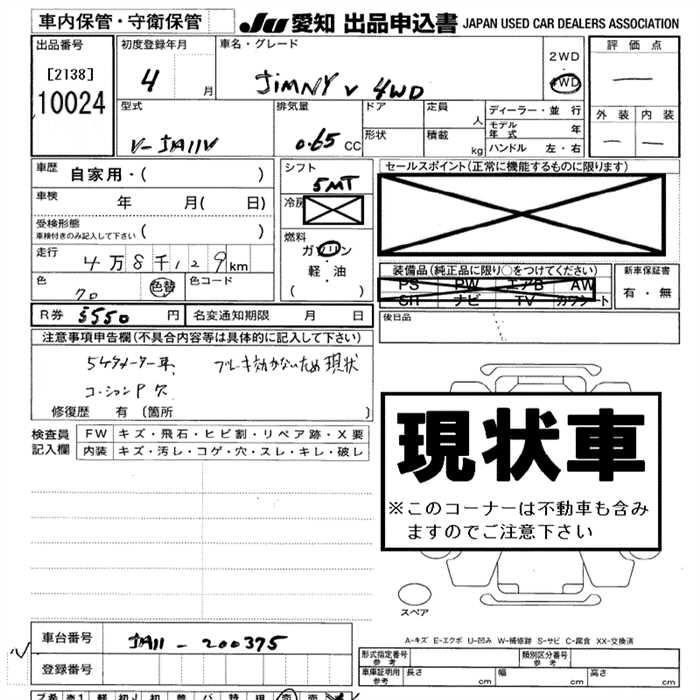 車内保管・守衛保管 JU 愛知 出品申込書 JAPAN USED CAR DEALERS ASSOCIATION
出品番号 初度登録年月 車名・グレード 評価点
[2138] 4 月 JIMNY V 4WD 2WD 4WD —
10024
型式 排気量 ドア 定員 人 ディーラー・並行 外装 内装
V-JA11V 0.65 CC 形状 積載 kg モデル年式 年 — —
ハンドル 左・右
車歴 自家用・( ) シフト 5MT セールスポイント(正常に機能するものに限ります)
車検 年 月( 日) 冷房
受検形態 ( )
車検付きのみ記入して下さい
燃料
走行 4万8千129km ガソリン 装備品(純正品に限り○をつけてください) 新車保証書
色 色替 色コード 軽・油 PS PW エアB AW 有・無
( ) SR ナビ TV カワシート
R券 5550 円 名変通知期限 月 日 後日品
注意事項申告欄(不具合内容等は具体的に記入して下さい)
5ケタメーター車、 ブレーキ効かないため現状
コーションP欠
修復歴 有 〔箇所 〕
検査員記入欄 FW キズ・飛石・ヒビ割・リペア跡・X要
内装 キズ・汚レ・コゲ・穴・スレ・キレ・破レ
現状車
※このコーナーは不動車も含み
ますのでご注意下さい
スペア
A-キズ E-エクボ U-凹み W-補修跡 S-サビ C-腐食 XX-交換済
車台番号 JA11-200375
登録番号
形式指定番号 参考 類別区分番号 参考
車庫証明用 参考 長さ cm 幅 cm 高さ cm